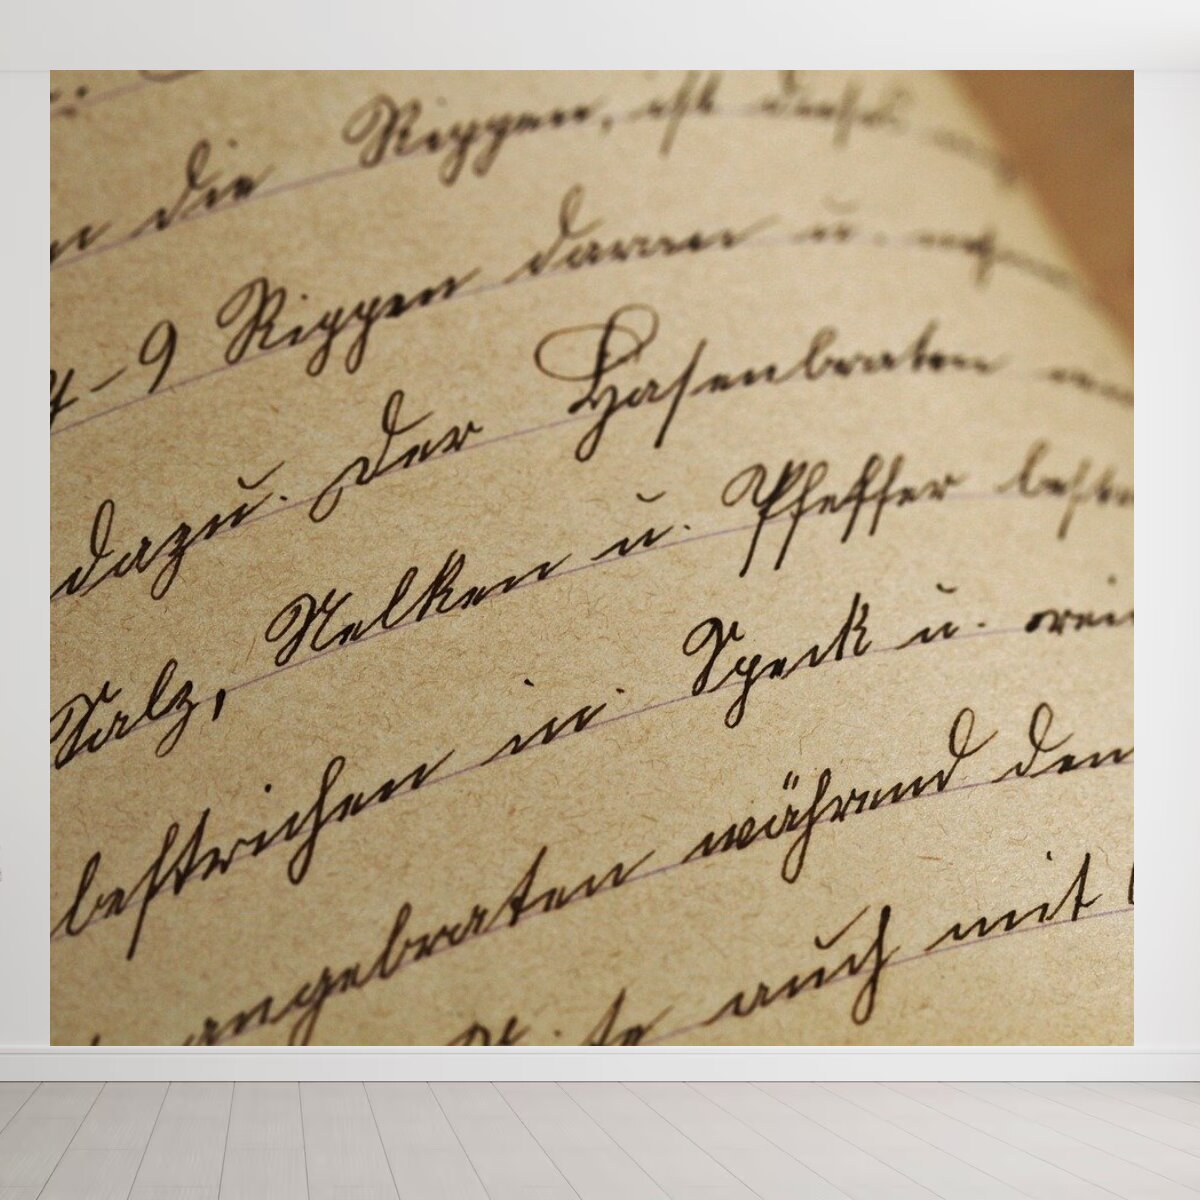 die Rippen, ist dieses
7-9 Rippen daran u.
dazu. Der Hasenbraten
Salz, Nelken u. Pfeffer
bestrichen in Speck u.
angebraten während den
auch mit